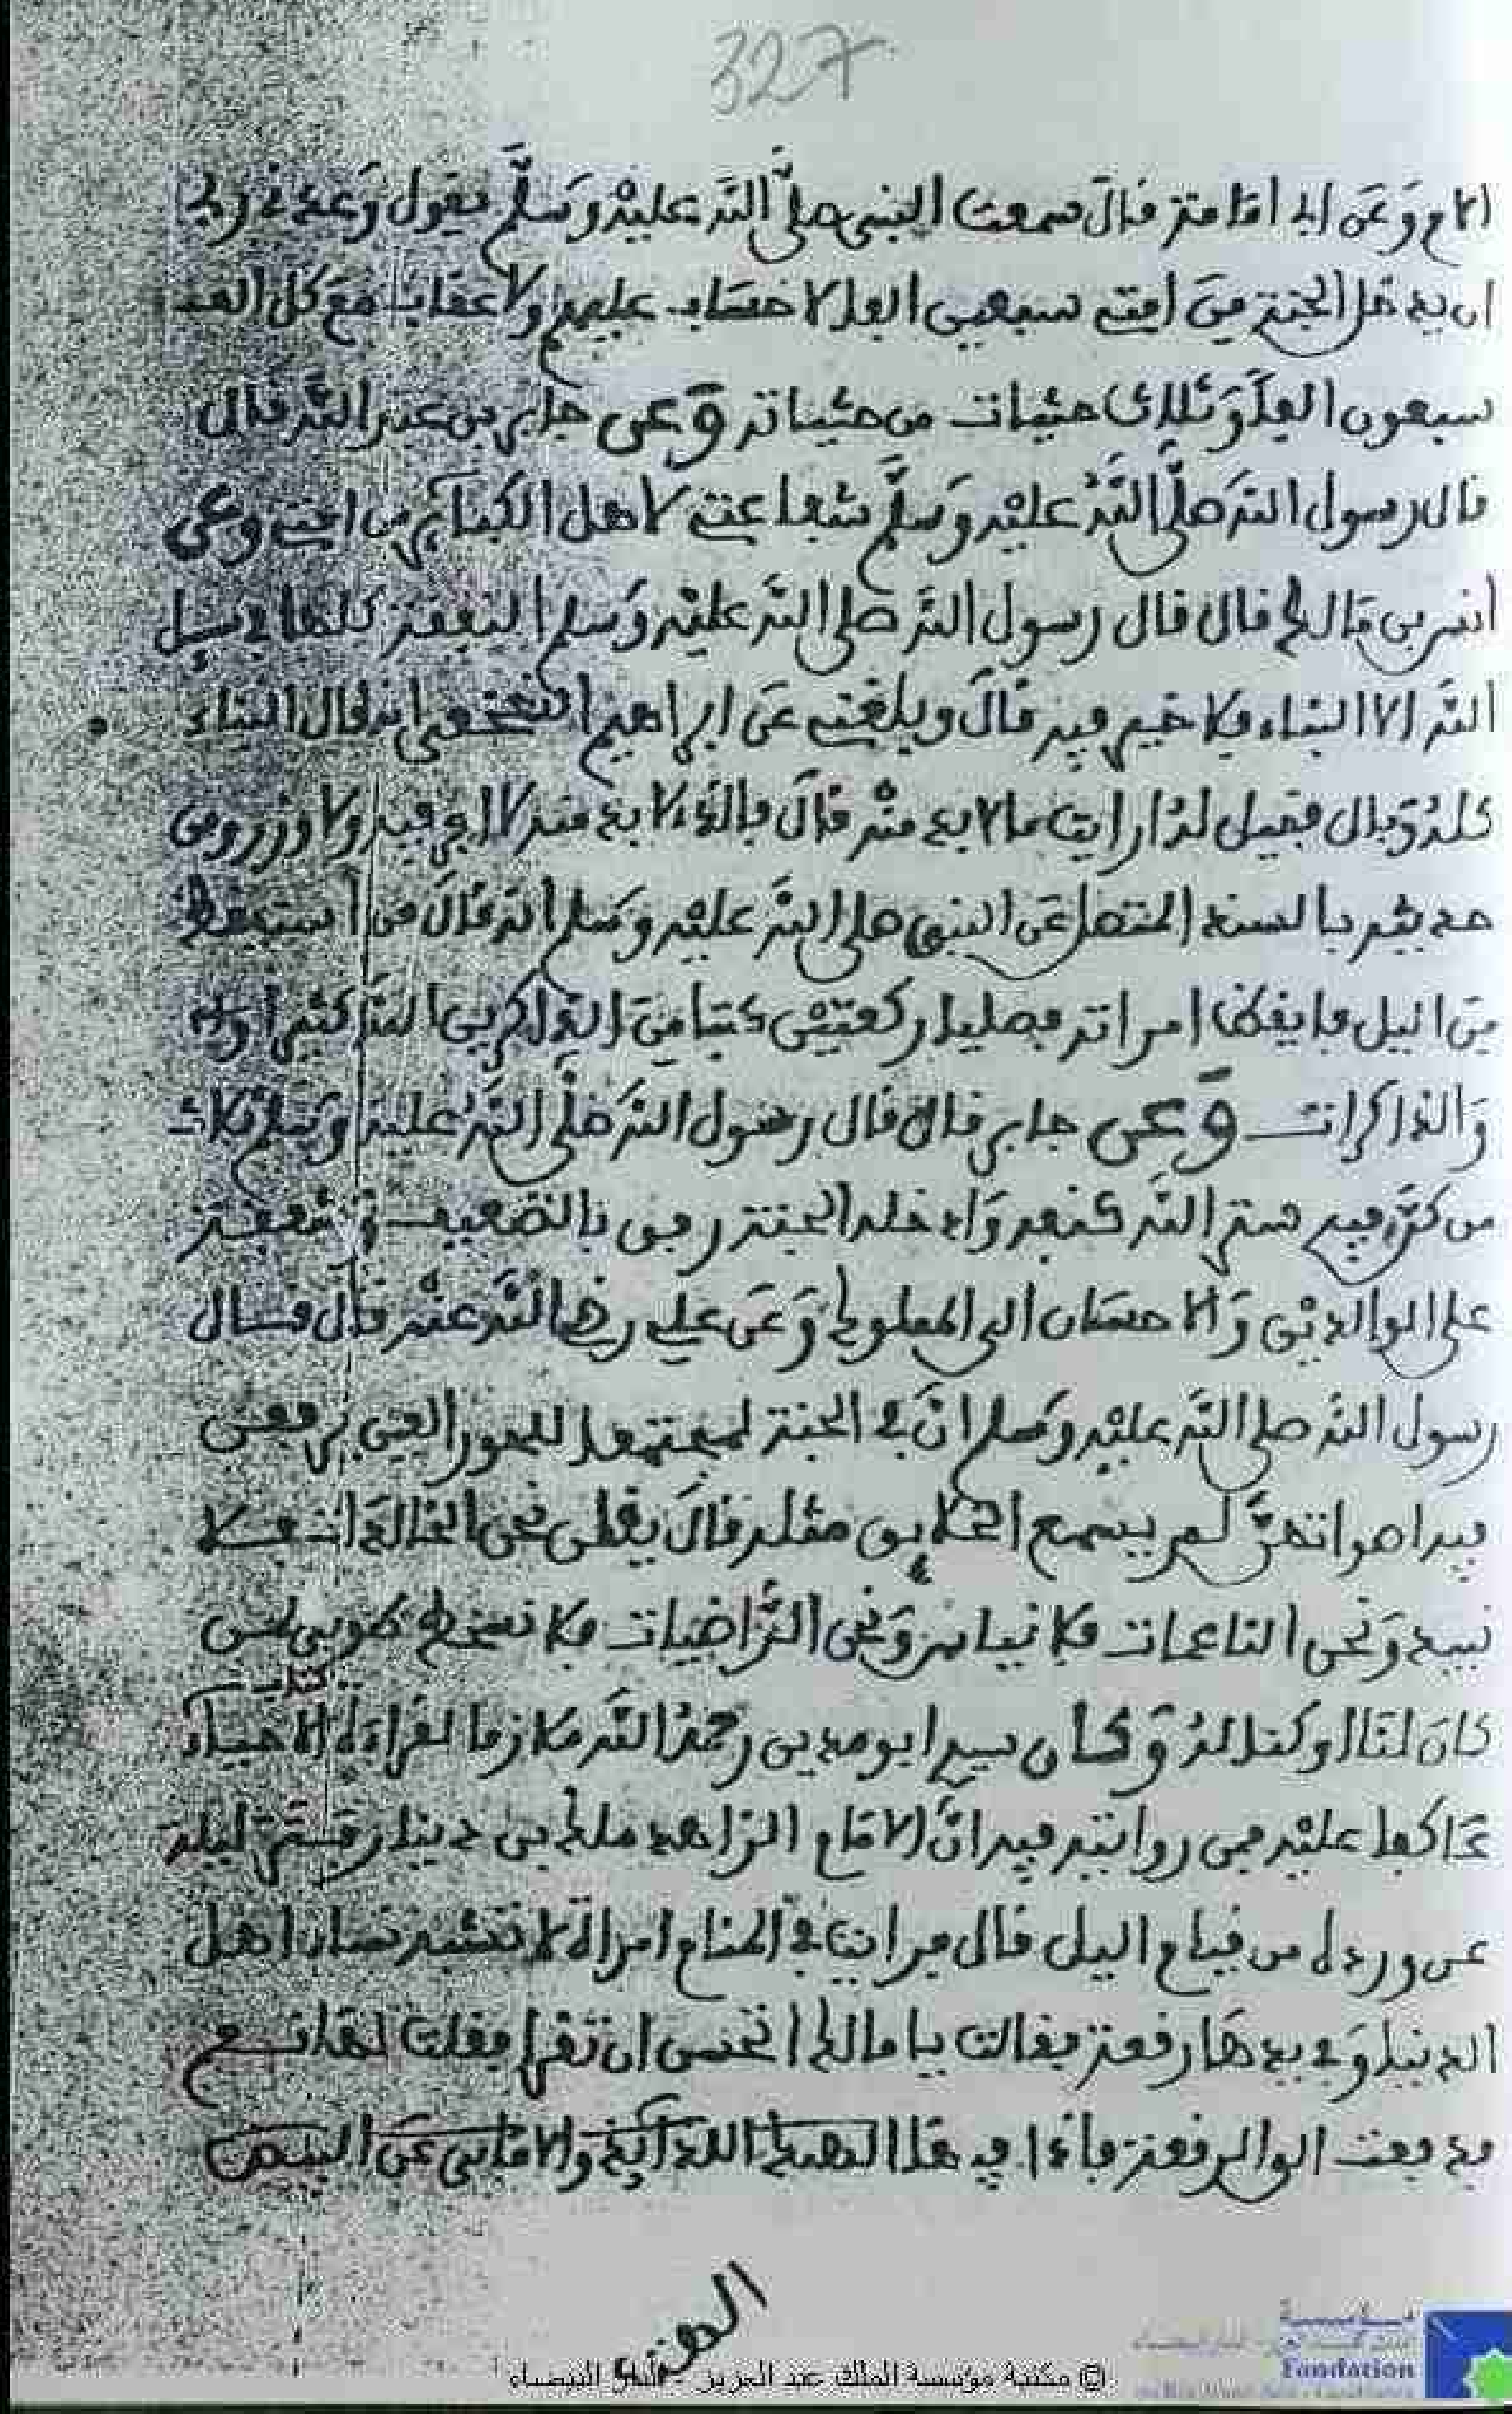 327
الام وَعَن ابي امامة قالَ سمعت النبي صلَّى اللَّه عليْه وَسلَّم يقول وَعدني ربي
ان يدخل الجنة منَ امتي سبعين الفا لا حسَاب عليهم ولا عقاب مَع كل الف
سبعون الفًا وَثلاث حثيات من حثياته وَعن جابر بن عبد اللَّه قال
قال رسول اللَّه صَلَّى اللَّهُ عليْه وَسلَّم شفاعتي لاهل الكبائر من امتي وعن
انس بن مَالك قال قال رسول اللَّه صلى اللَّه عليْه وَسلم النفقة كلها في سبيل
اللَّه الا البناء فلا خير فيه قالَ وبلغني عَن ابراهيم النخعي انه قال البناء
كلهُ وَبال فقيل لهُ ارايت ما لا بد منْه قالَ مالا بد منه لا اجر فيه ولا وزر ومن
حديثه بالسند المتصل عَن النبي صلى اللَّه عليْه وسَلم انه قالَ من استيقظ
منَ اليل فايقظ امراته فصليا ركعتيْن كتبا منَ الذاكرين اللَّه كثيرا
وَالذاكرات وَعن جابر قال قال رسُول اللَّه صَلَّى اللَّهُ عليْه وَسلم ثلاث
من كنَّ فيه ستر اللَّه كنفه وَادخله الجنة رفق بالضعيف وَشفقة
على الوالديْن وَالاحسَان الى المملوك وَعَن علي رضي اللَّه عنْه قال قال
رسول اللَّه صلى اللَّه عليْه وسَلم انَّ في الجنة لمجتمعا للحور العين يرفعن
فيه اصواتهنَّ لم يسمع الخلايق مثله قالَ يقلن نحن الخالدات فلا
نبيد وَنحن الناعمات فلا نباس وَنحن الرَّاضيات فلا نسخط طوبى لمن
كانَ لنا وكنا لهُ وَكان سيدي ابو مدين رحمهُ اللَّه ملازما لقراءة كتاب الاحياء
عَاكفا عليْه فمن روايته فيه انَّ الامَام الزاهد مالك بن دينار ليلة
عن ورده من قيام اليل قال فرايت في المنام امراة لا تشبه نساء اهل
الدنيا وَفي يدهَا رقعة فقالت يا مالك اتحسن ان تقرا فقلت لها نعم
فدفعت الي الرقعة فاذا فيها االهتك اللذائذ والامَاني عَن البيض